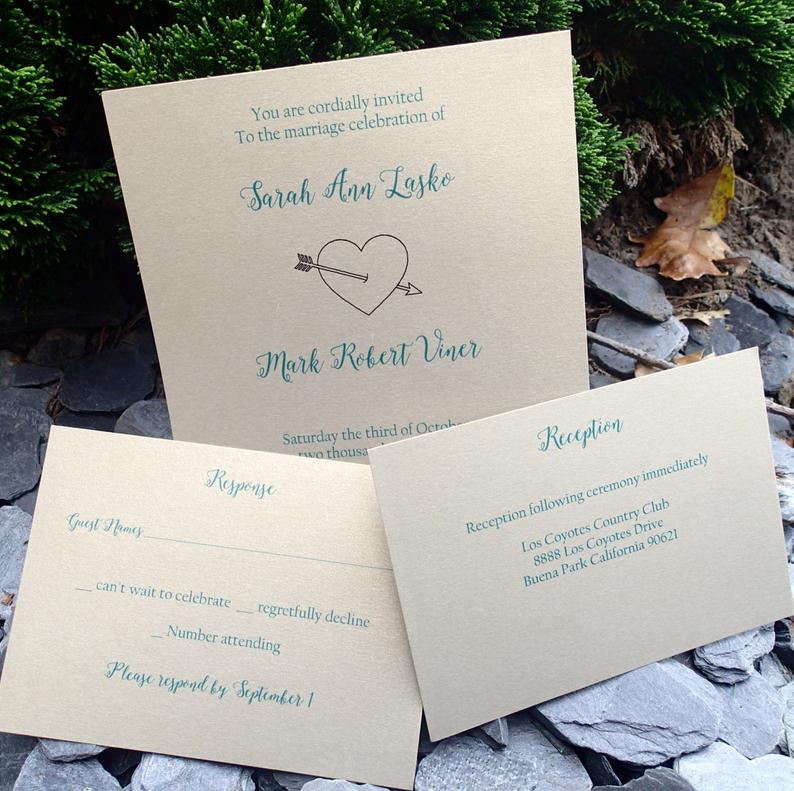 You are cordially invited
To the marriage celebration of
Sarah Ann Lasko
Mark Robert Viner
Saturday the third of
two
Response
Guest Names
__ can't wait to celebrate __ regretfully decline
_ Number attending
Please respond by September 1
Reception
Reception following ceremony immediately
Los Coyotes Country Club
8888 Los Coyotes Drive
Buena Park California 90621